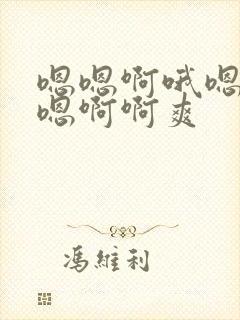 嗯嗯啊哦嗯
嗯啊啊爽
馮維利